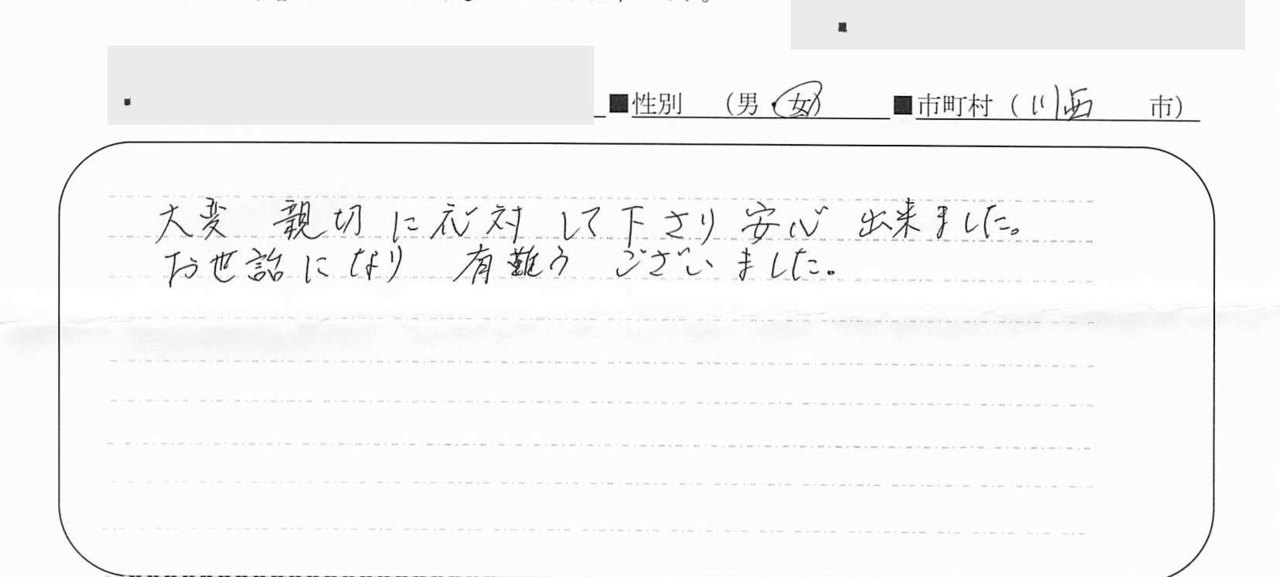 ■性別 （男・女） ■市町村（川西 市）
大変 親切に応対して下さり安心 出来ました。
お世話になり 有難う ございました。